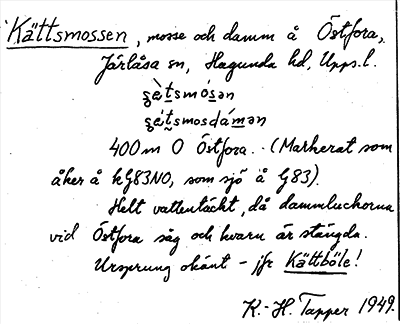 Kättsmossen, mosse och damm å Östfora,
Järlåsa sn, Hagunda hd, Upps.l.
400 m O Östfora. (Markerat som
åker å kG83NO, som sjö å G83).
Helt vattentäckt, då dammluckorna
vid Östfora såg och kvarn är stängda.
Ursprung okänt – jfr Kättböle!
K.-H. Tapper 1949.